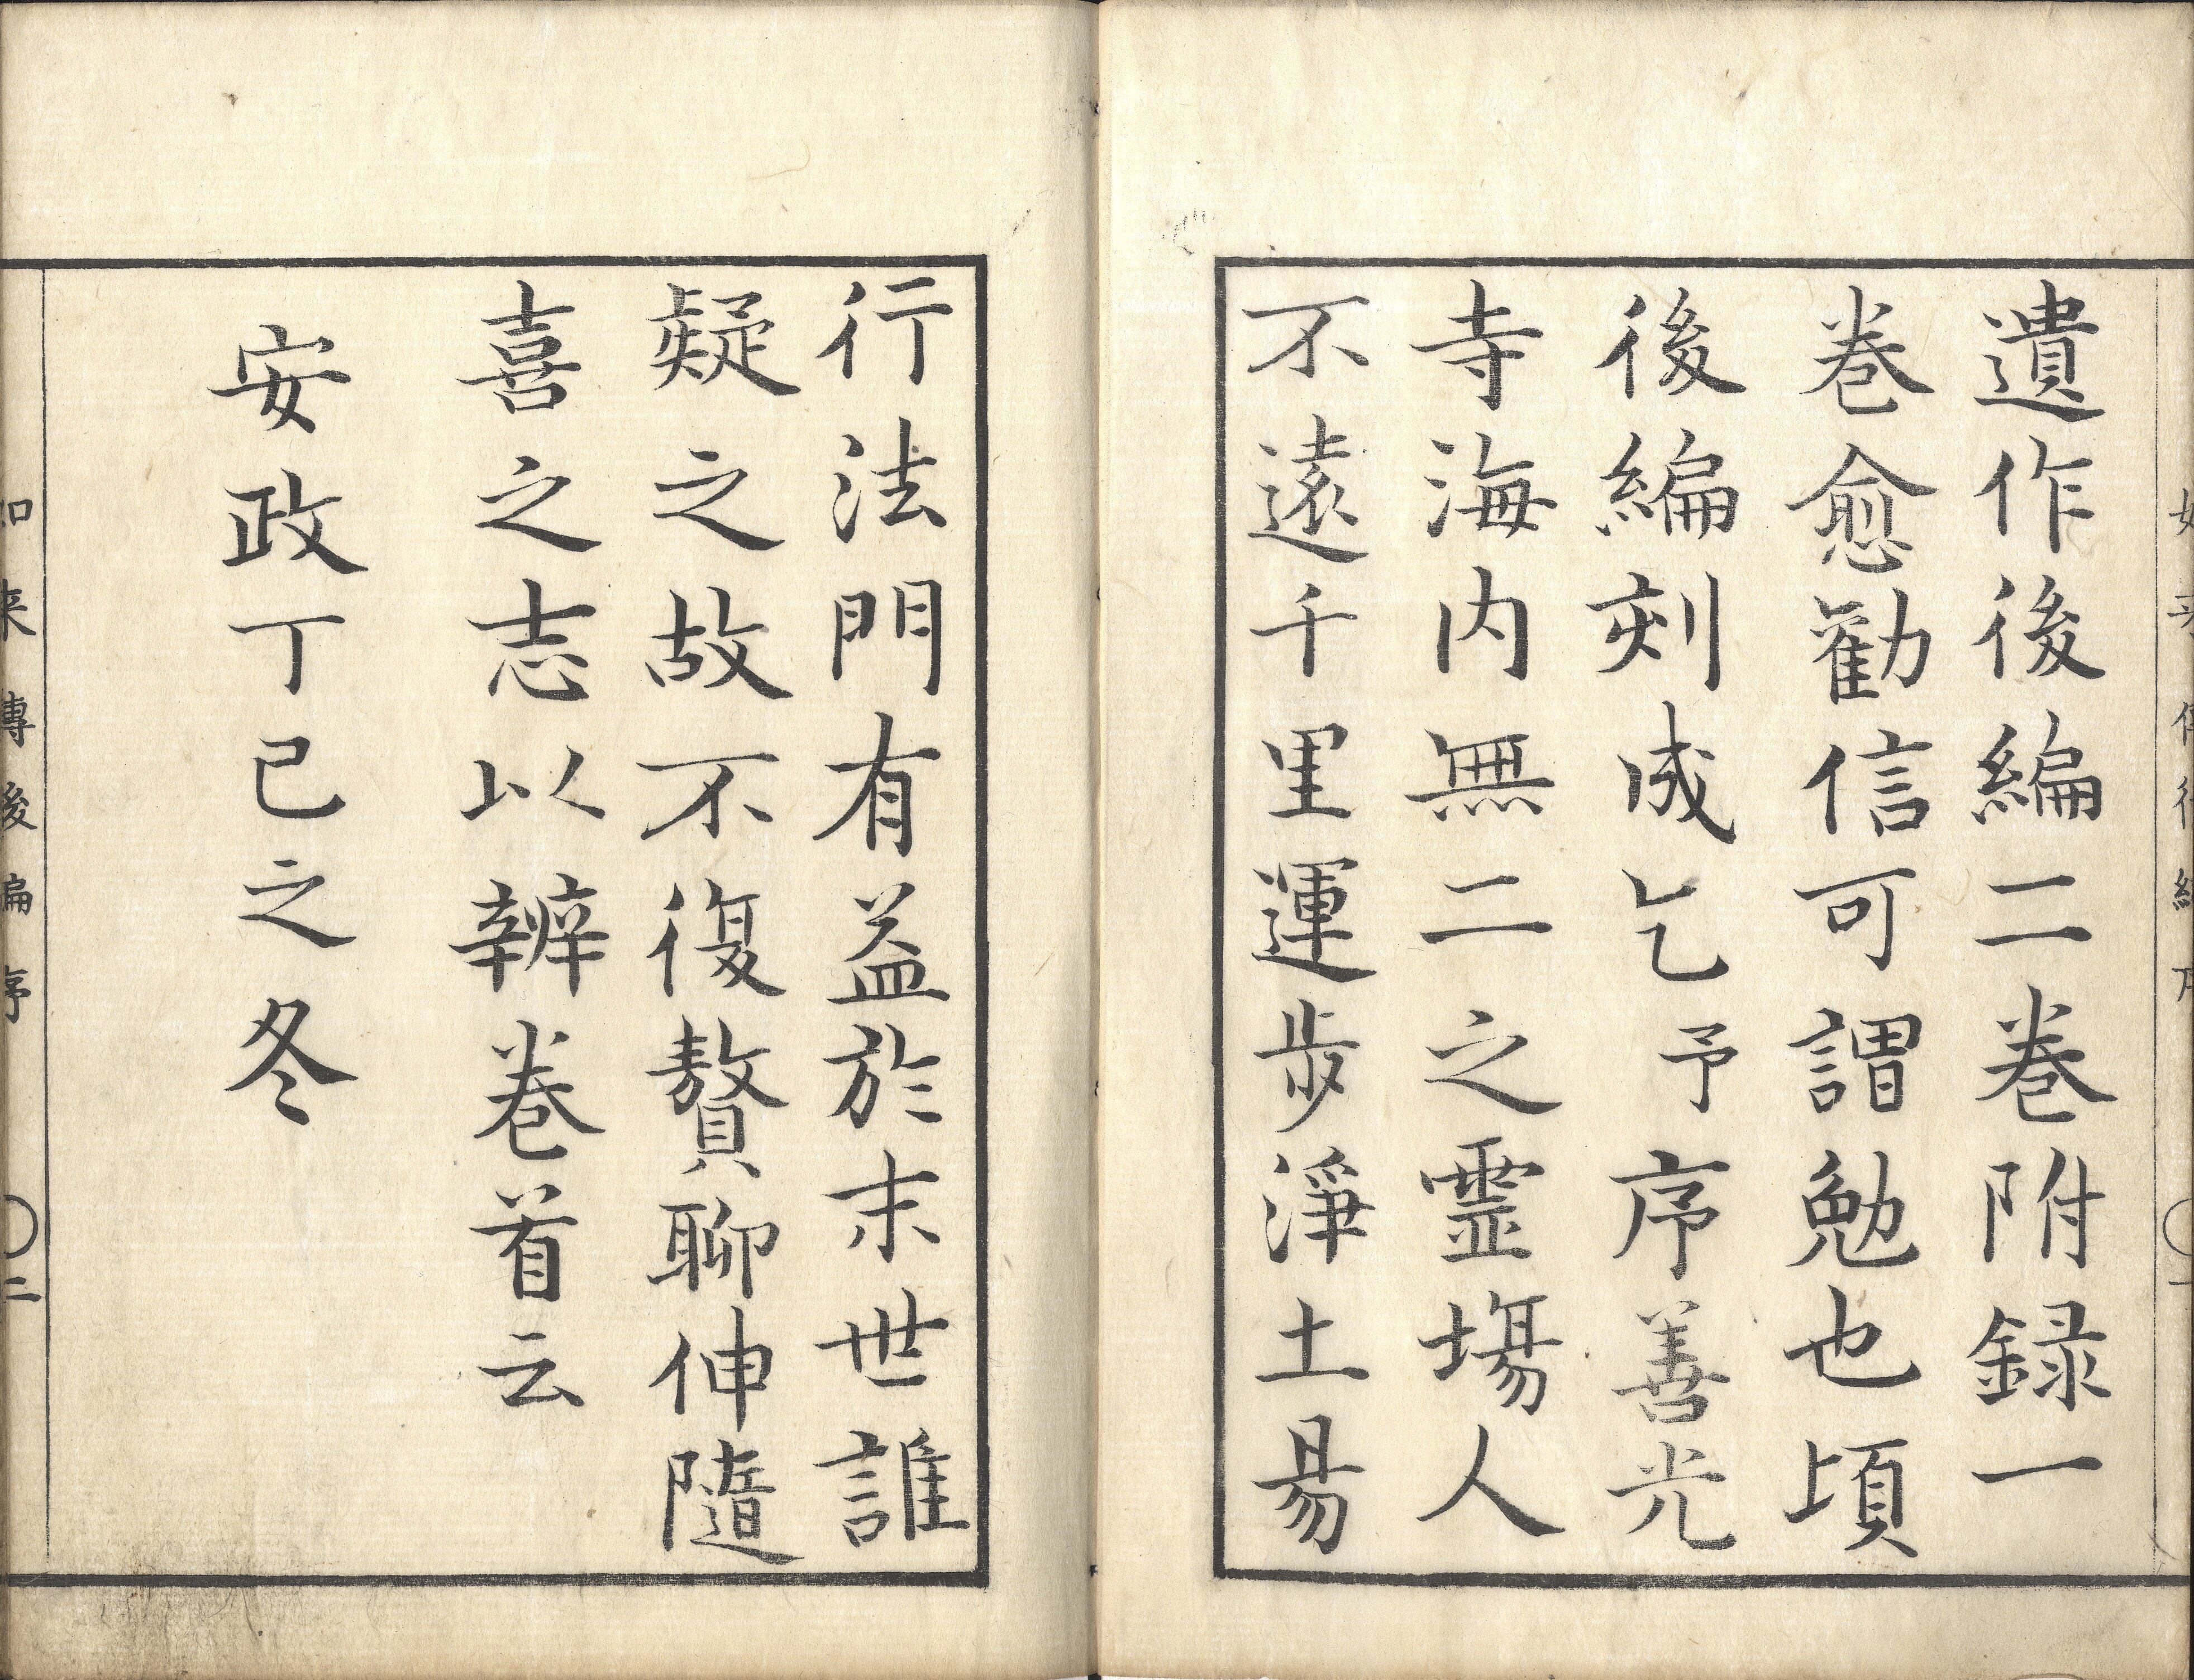 遺作後編二巻附録一
巻愈勧信可謂勉也頃
後編刻成乞予序善光
寺海内無二之霊塲人
不遠千里運歩淨土昜
行法門有益於末世誰
疑之故不復贅聊伸隨
喜之志以辨巻首云
安政丁巳之冬
如来傳後編序
二